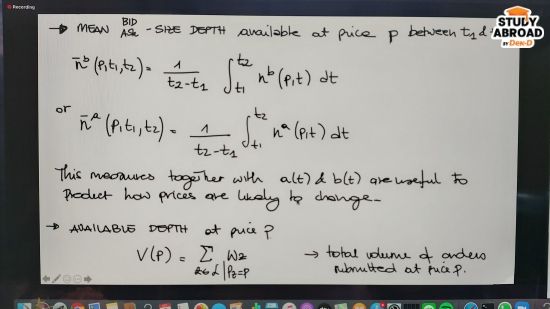 Recording
STUDY
ABROAD
BY Dek-D
→ MEAN BID ASK - SIZE DEPTH available at price p between t₁ &
n̄ᵇ (p,t₁,t₂) = 1/(t₂-t₁) ∫_{t₁}^{t₂} nᵇ(p,t) dt
or
n̄ᵃ (p,t₁,t₂) = 1/(t₂-t₁) ∫_{t₁}^{t₂} nᵃ(p,t) dt
This measures together with a(t) & b(t) are useful to
Product how prices are likely to change_
→ AVAILABLE DEPTH at price p
V(p) = Σ Wz → total volume of orders
Pz=p submitted at price p.